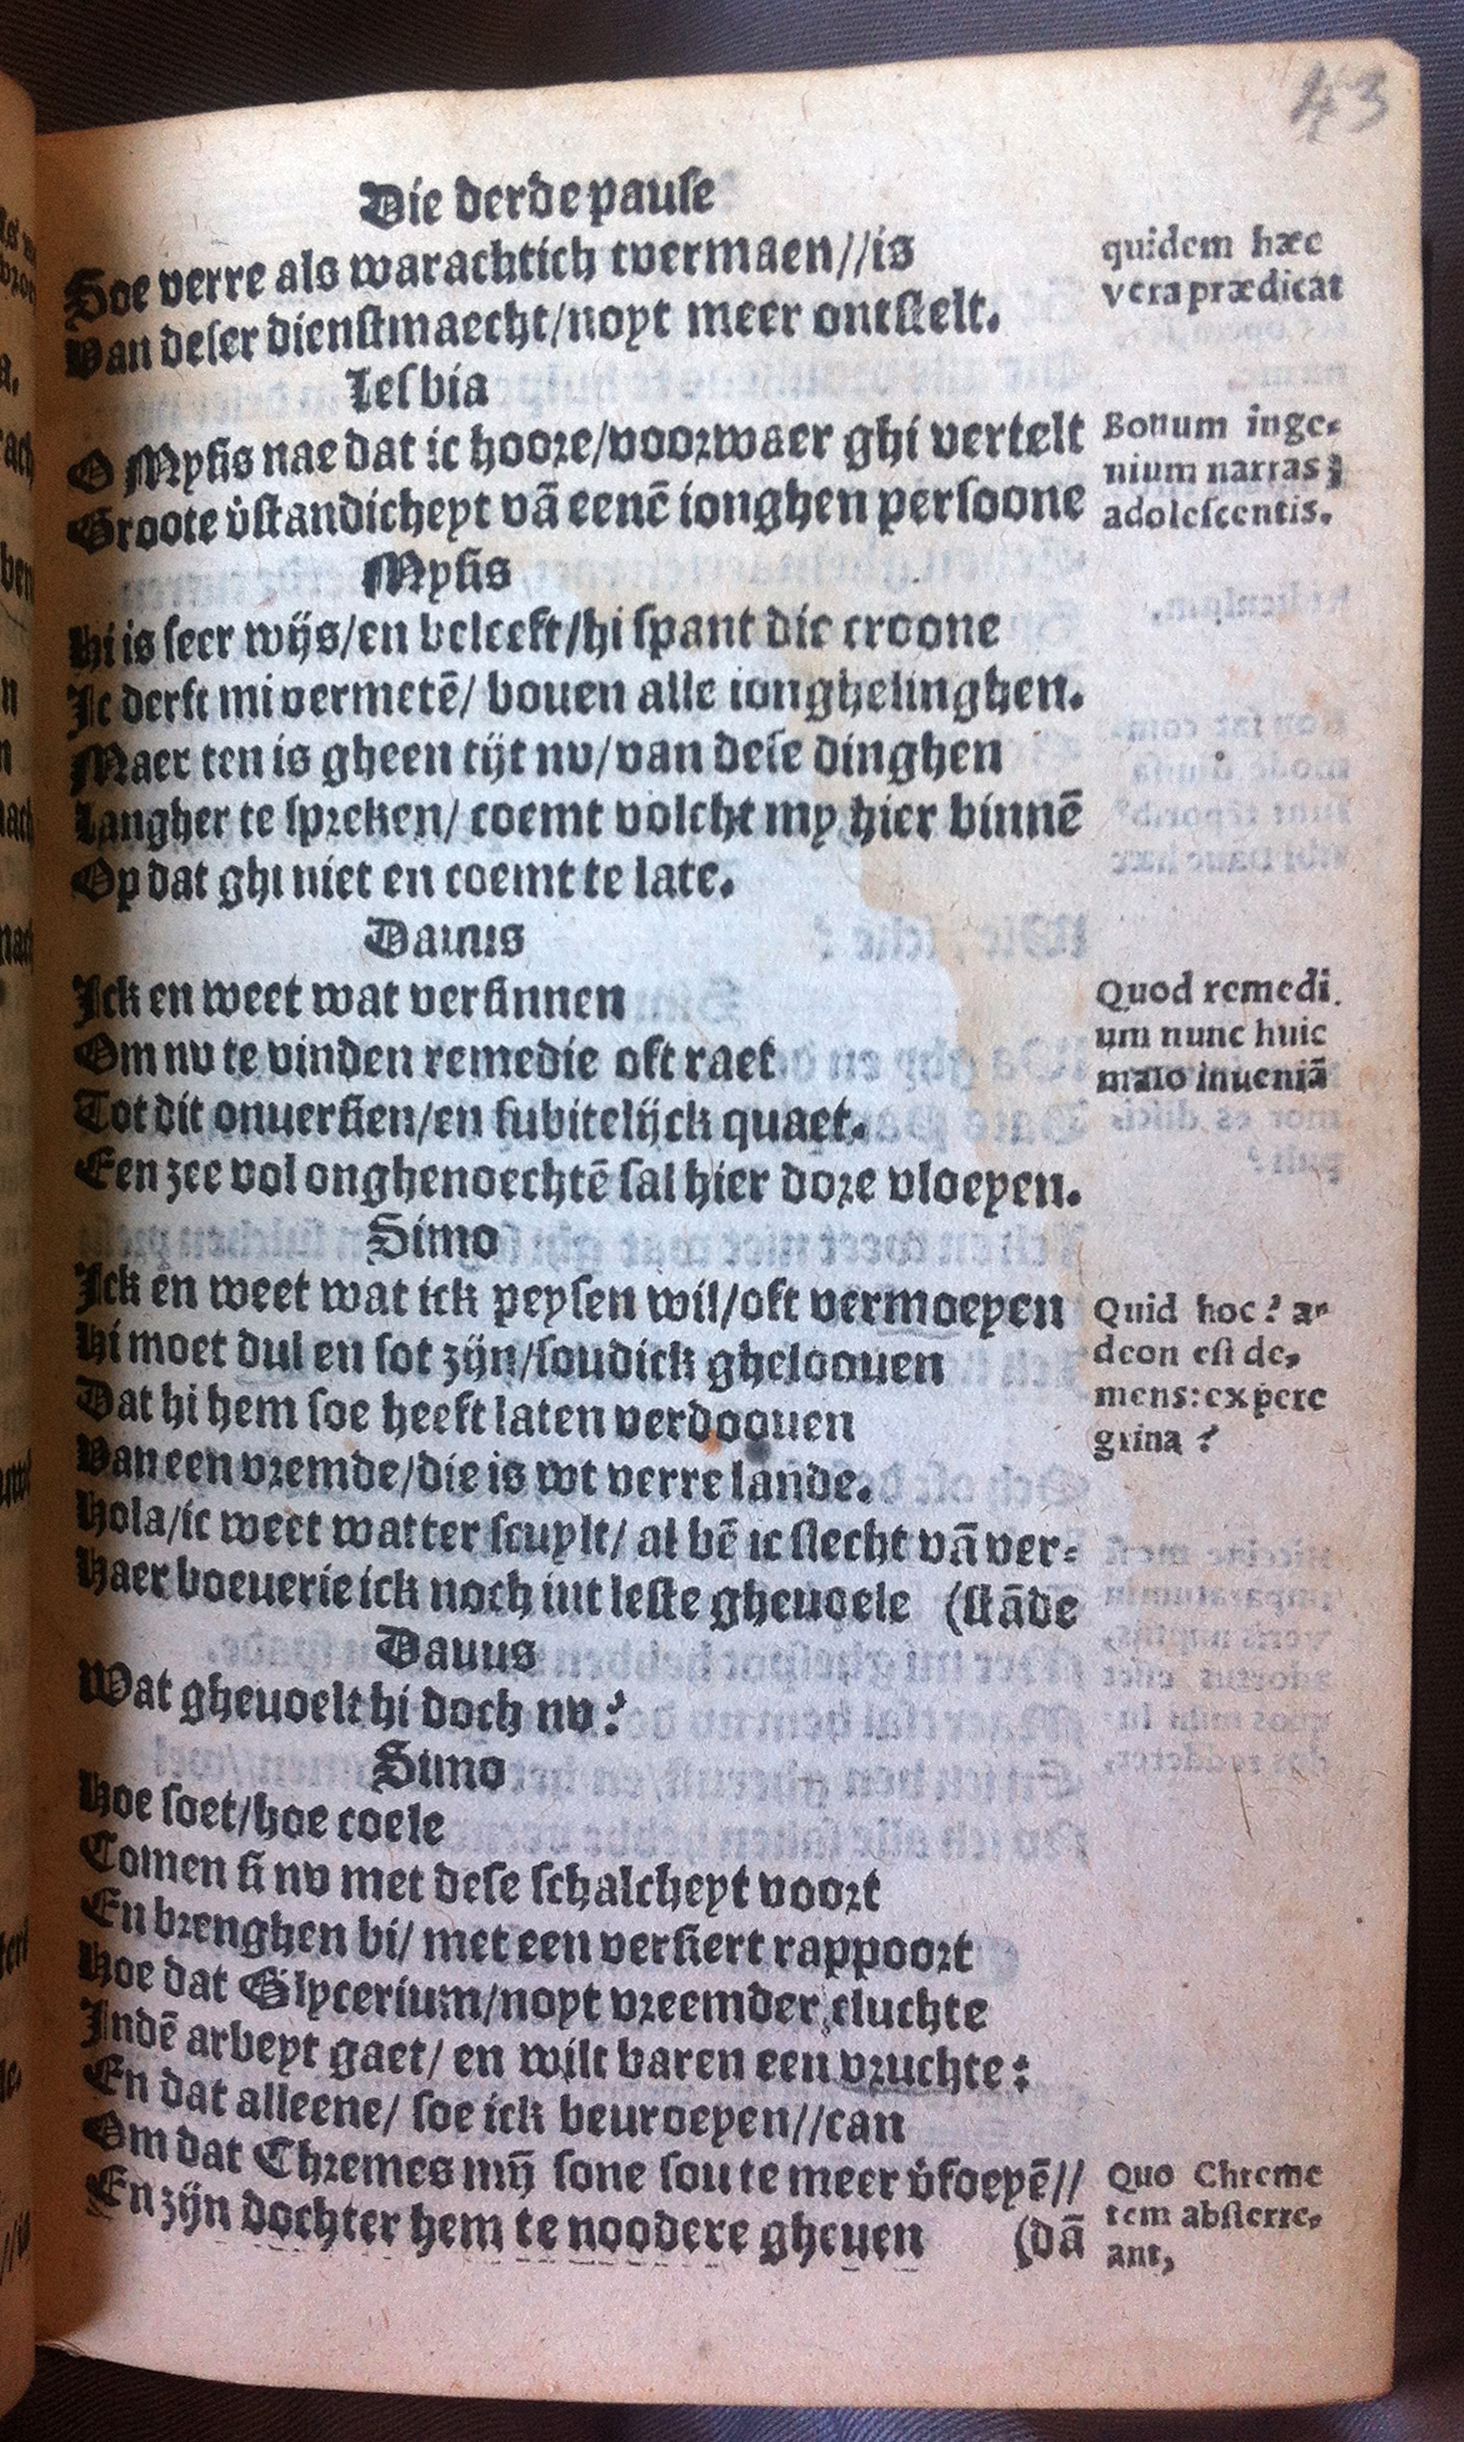 43
Die derde pause
Hoe verre als warachtich tvermaen//is
Van deser dienstmaecht/noyt meer ontstelt.
quidem hæc
vera prædicat
Lesbia
O Mysis nae dat ic hoore/voorwaer ghi vertelt
Groote v̊standicheyt vā eenē ionghen persoone
Bonum inge-
nium narras
adolescentis.
Mysis
Hi is seer wijs/en beleeft/hi spant die croone
Ic derft mi vermetē/ bouen alle ionghelinghen.
Maer ten is gheen tijt nv/van dese dinghen
Langher te spreken/ coemt volcht my hier binnē
Op dat ghi niet en coemt te late.
Dauus
Ick en weet wat versinnen
Om nv te vinden remedie oft raet
Tot dit onuersien/en subitelijck quaet.
Een zee vol onghenoechtē sal hier dore vloeyen.
Quod remedi
um nunc huic
malo inueniā
Simo
Ick en weet wat ick peysen wil/oft vermoeyen
Hi moet dul en sot zijn/soudick gheloouen
Dat hi hem soe heeft laten verdoouen
Van een vremde/die is wt verre lande.
Hola/ic weet watter scuylt/ al bē ic slecht vā ver-
Haer boeuerie ick noch int leste gheuoele (stāde
Quid hoc? a-
deon est de-
mens: ex pere
grina?
Dauus
Wat gheuoelt hi doch nv?
Simo
Hoe soet/hoe coele
Comen si nv met dese schalcheyt voort
En brenghen bi/ met een versiert rappoort
Hoe dat Glycerium/noyt vreemder cluchte
Indē arbeyt gaet/ en wilt baren een vruchte:
En dat alleene/ soe ick beuroeyen//can
Om dat Chremes mij̄ sone sou te meer v̊foeyē//
En zijn dochter hem te noodere gheuen (dā
Quo Chreme
tem absterre-
ant,